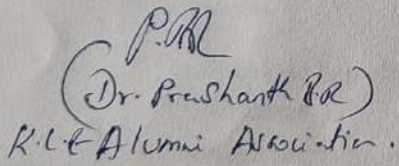 (Dr. Prashanth B.R)
K.L.E Alumni Association.